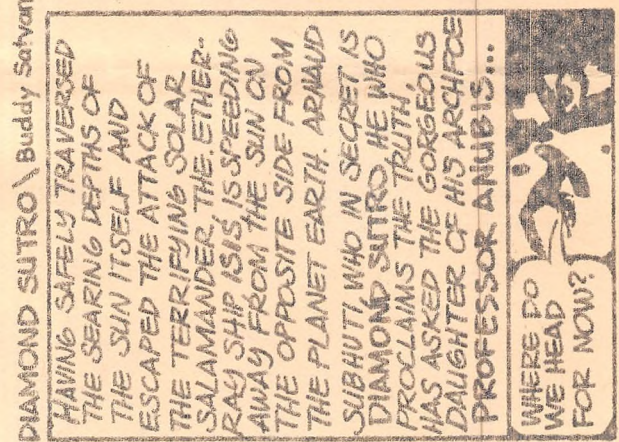 DIAMOND SUTRO \ Buddy Satvan
HAVING SAFELY TRAVERSED
THE SEARING DEPTHS OF
THE SUN ITSELF AND
ESCAPED THE ATTACK OF
THE TERRIFYING SOLAR
SALAMANDER, THE ETHER-
RAY SHIP ISIS IS SPEEDING
AWAY FROM THE SUN ON
THE OPPOSITE SIDE FROM
THE PLANET EARTH. ARNAUD
SUBHUTI, WHO IN SECRET IS
DIAMOND SUTRO, HE WHO
PROCLAIMS THE TRUTH,
HAS ASKED THE GORGEOUS
DAUGHTER OF HIS ARCHFOE
PROFESSOR ANUBIS...
WHERE DO
WE HEAD
FOR NOW?